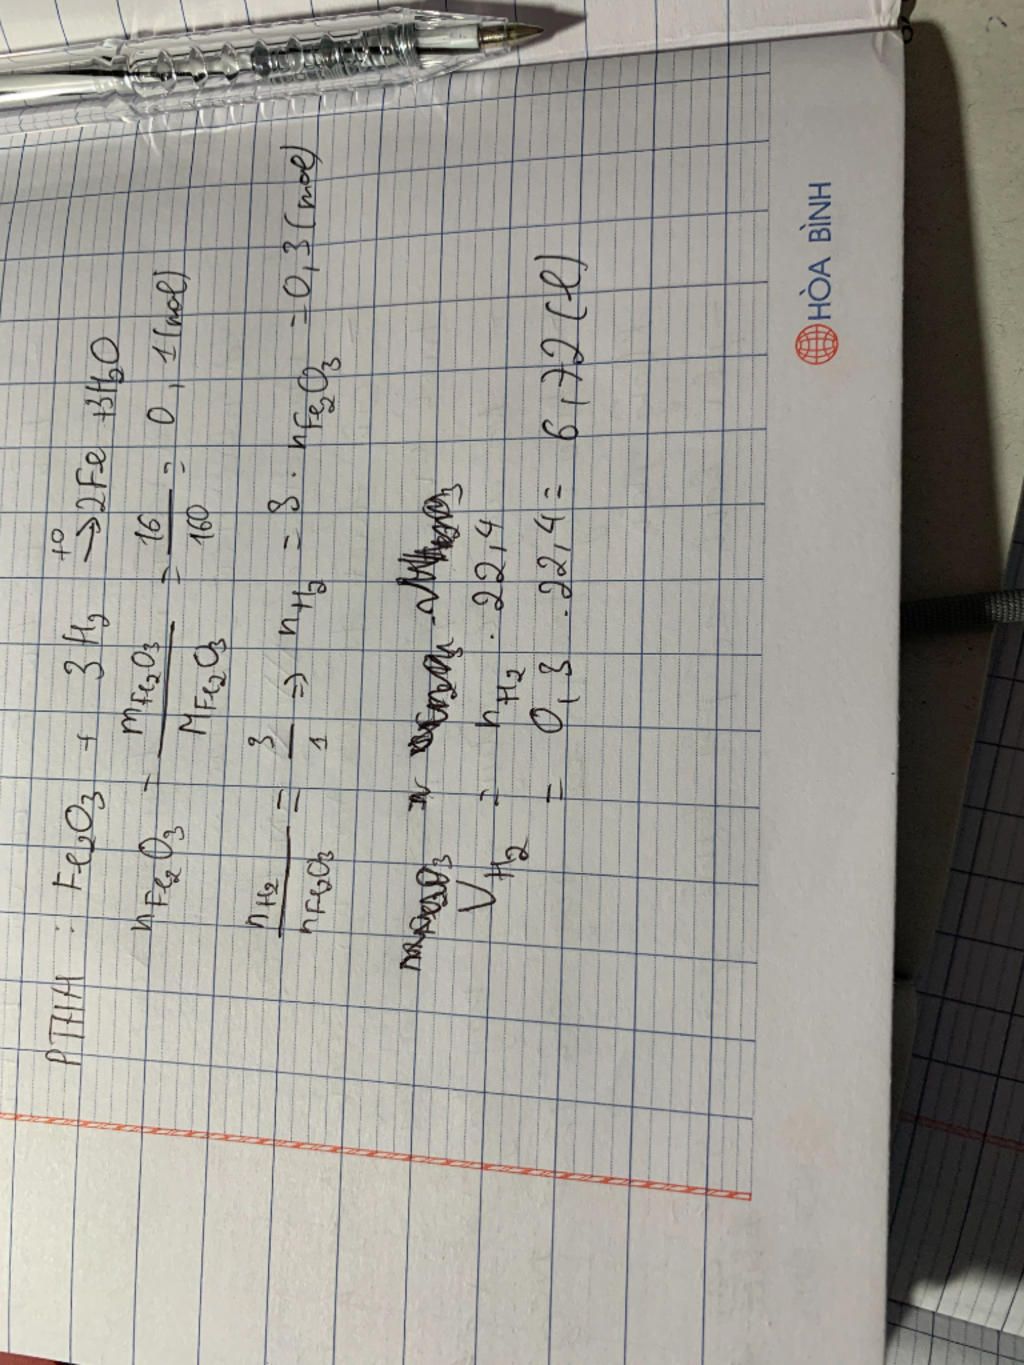 PTHH : Fe2O3 + 3H2 →t° 2Fe + 3H2O
nFe2O3 = mFe2O3 / MFe2O3 = 16 / 160 = 0,1 (mol)
nH2 / nFe2O3 = 3 / 1 => nH2 = 3 . nFe2O3 = 0,3 (mol)
VH2 = nH2 . 22,4
= 0,3 . 22,4 = 6,72 (l)
HÒA BÌNH